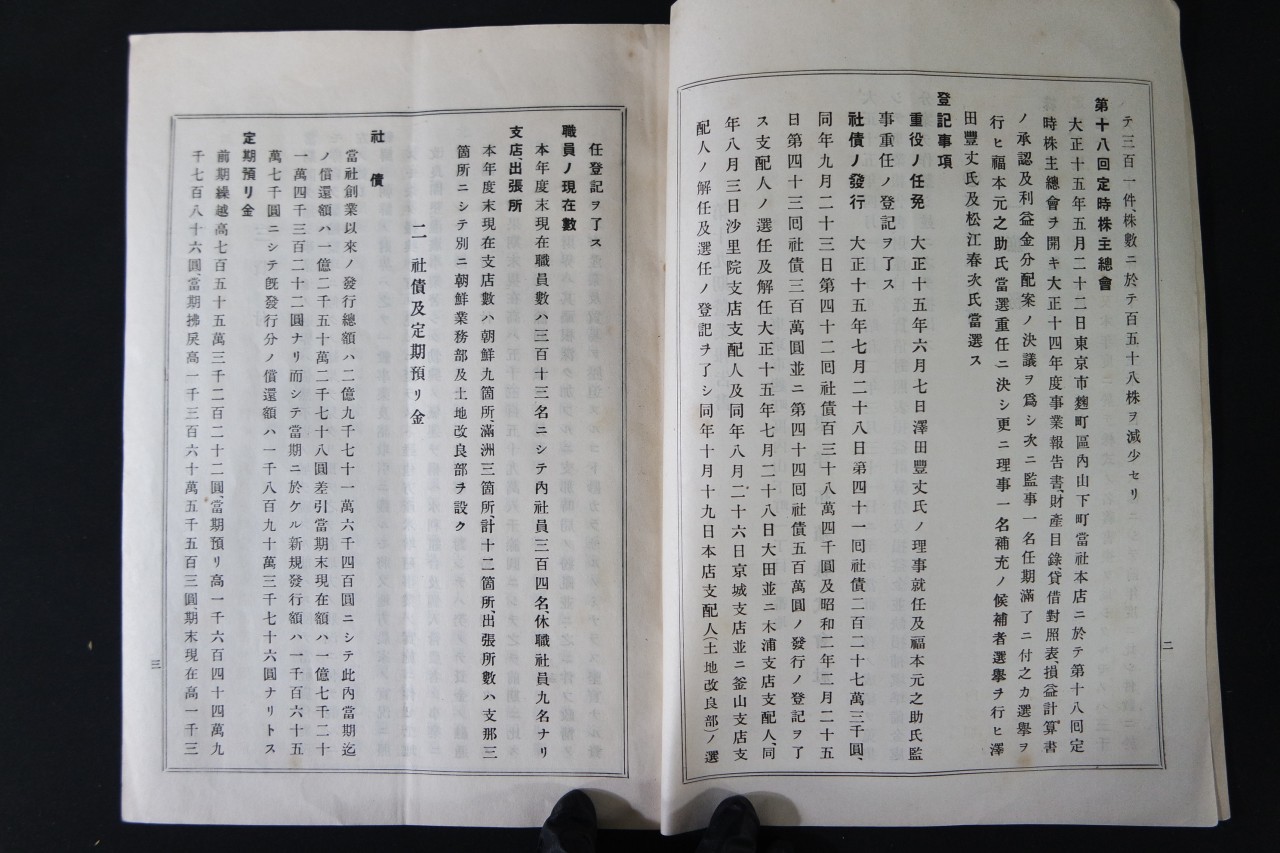 ノテ三百一件株數ニ於テ百五十八株ヲ減少セリ
第十八回定時株主總會
大正十五年五月二十二日東京市麴町區內山下町當社本店ニ於テ第十八回定
時株主總會ヲ開キ大正十四年度事業報告書、財產目錄、貸借對照表、損益計算書
ノ承認及利益金分配案ノ決議ヲ爲シ次ニ監事一名任期滿了ニ付之カ選擧ヲ
行ヒ福本元之助氏當選重任ニ決シ更ニ理事一名補充ノ候補者選擧ヲ行ヒ澤
田豐丈氏及松江春次氏當選ス
登記事項
重役ノ任免 大正十五年六月七日澤田豐丈氏ノ理事就任及福本元之助氏監
事重任ノ登記ヲ了ス
社債ノ發行 大正十五年七月二十八日第四十一回社債二百二十七萬三千圓、
同年九月二十三日第四十二回社債百三十八萬四千圓及昭和二年二月二十五
日第四十三回社債三百萬圓並ニ第四十四回社債五百萬圓ノ發行ノ登記ヲ了
ス支配人ノ選任及解任大正十五年七月二十八日大田並ニ木浦支店支配人、同
年八月三日沙里院支店支配人及同年八月二十六日京城支店並ニ釜山支店支
配人ノ解任及選任ノ登記ヲ了シ同年十月十九日本店支配人(土地改良部)ノ選
二
任登記ヲ了ス
職員ノ現在數
本年度末現在職員數ハ三百十三名ニシテ內社員三百四名、休職社員九名ナリ
支店、出張所
本年度末現在支店數ハ朝鮮九箇所、滿洲三箇所、計十二箇所、出張所數ハ支那三
箇所ニシテ別ニ朝鮮業務部及土地改良部ヲ設ク
二 社債及定期預リ金
社債
當社創業以來ノ發行總額ハ二億九千七十一萬六千四百圓ニシテ此內當期迄
ノ償還額ハ一億二千五十萬二千七十八圓差引當期末現在額ハ一億七千二十
一萬四千三百二十二圓ナリ而シテ當期ニ於ケル新規發行額ハ一千百六十五
萬七千圓ニシテ旣發行分ノ償還額ハ一千八百九十萬三千七十六圓ナリトス
定期預リ金
前期繰越高七百五十五萬三千二百二十二圓、當期預リ高一千六百四十四萬九
千七百八十六圓、當期拂戾高一千三百六十萬五千五百三圓、期末現在高一千三
三